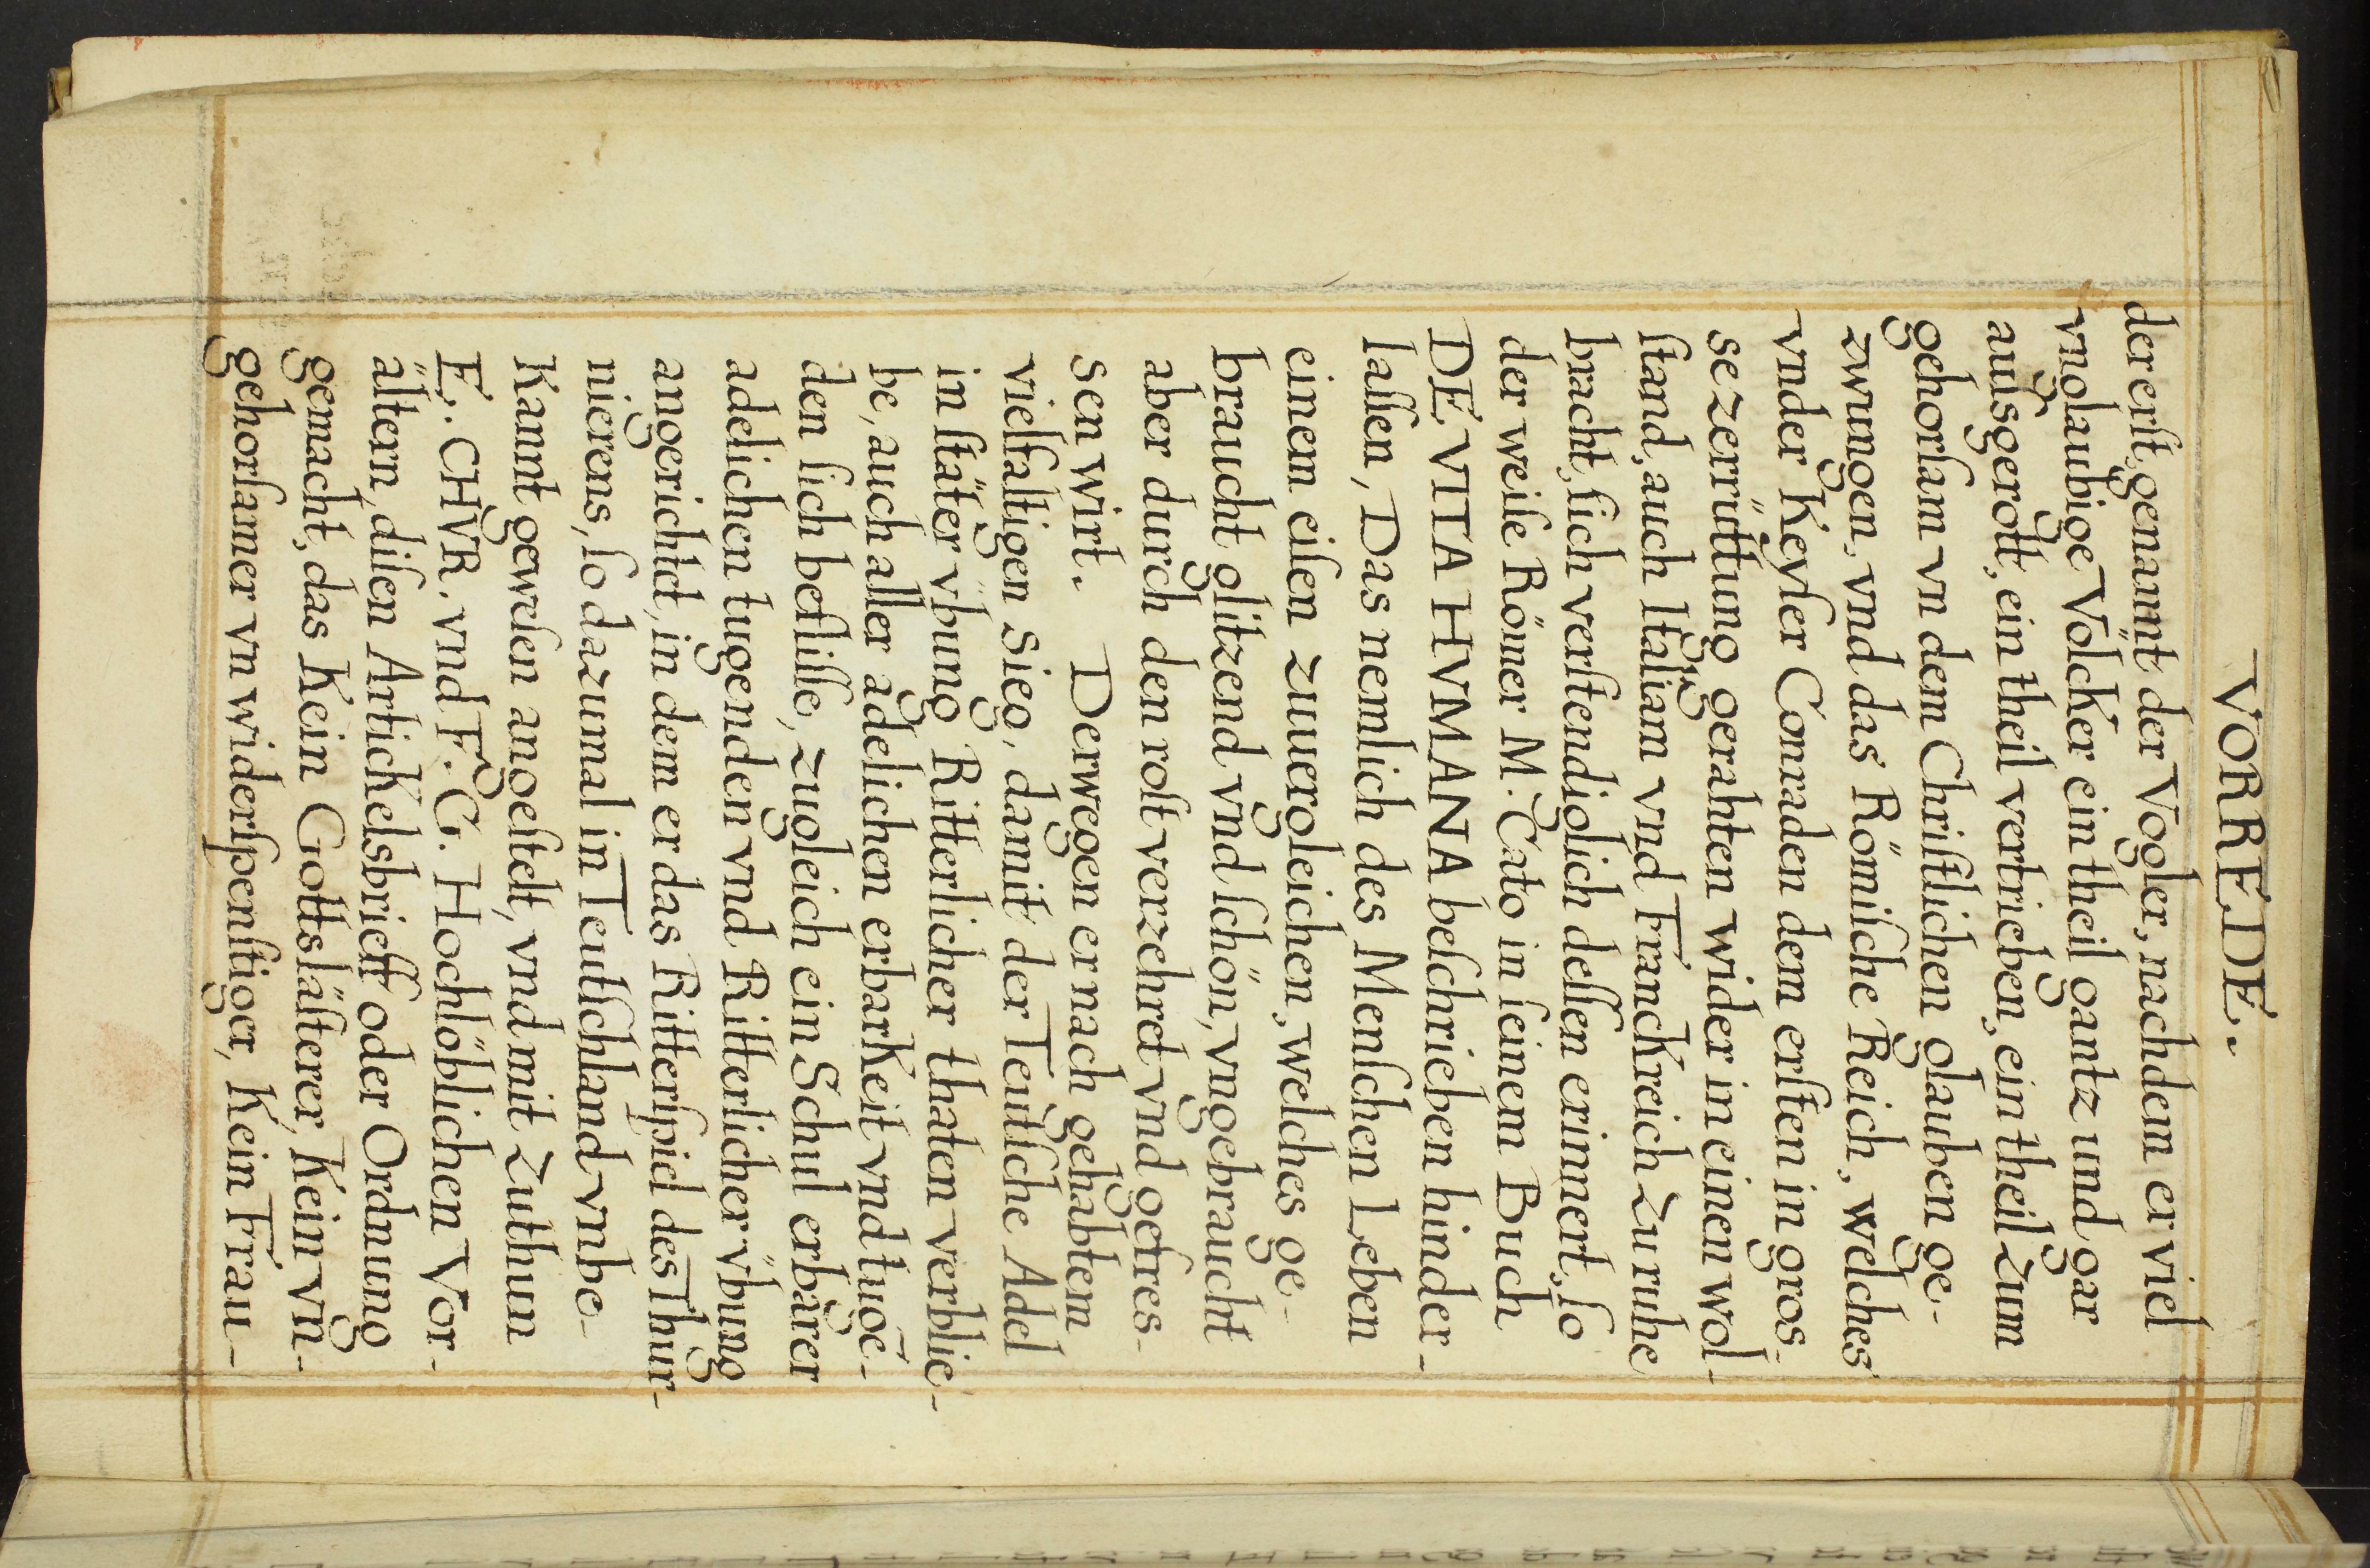 VORREDE.
der erſt, genannt der Vogler, nachdem er viel
vnglaubige Völcker ein theil gantz und gar
auſgerott, ein theil vertrieben, ein theil zum
gehorſam vn dem Chriſtlichen glauben ge-
zwungen, vnd das Römiſche Reich, welches
vnder Keyſer Conraden dem erſten in gros-
se zerrüttung gerahten wider in einen wol-
ſtand, auch Italiam vnd Franckreich zu ruhe
bracht, ſich verſtendiglich deſſen erinnert, ſo
der weiſe Römer M. Cato in ſeinem Buch
DE VITA HVMANA beſchrieben hinder-
laſſen, Das nemlich des Menſchen Leben
einem eiſen zuuergleichen, welches ge-
braucht glitzend vnd ſchön, vngebraucht
aber durch den roſt verzehret vnd gefres-
sen wirt. Derwegen er nach gehabtem
vielfaltigen sieg, damit der Teutſche Adel
in ſtäter vbung Ritterlicher thaten verblie-
be, auch aller adelichen erbarkeit vnd tugē-
den ſich befliſſe, zugleich ein Schul erbarer
adelichen tugenden vnd Ritterlicher vbung
angerichtet, in dem er das Ritterſpiel des Thur-
nierens, ſo dazumal in Teutſchland vnbe-
kannt geweſen angeſtelt, vnd mit zuthun
E. CHVR. vnd F. G. Hochlöblichen Vor-
ältern, diſen Artickelsbrieff oder Ordnung
gemacht, das kein Gottsläſterer, kein vn-
gehorſamer vn widerſpenſtiger, kein Frau-